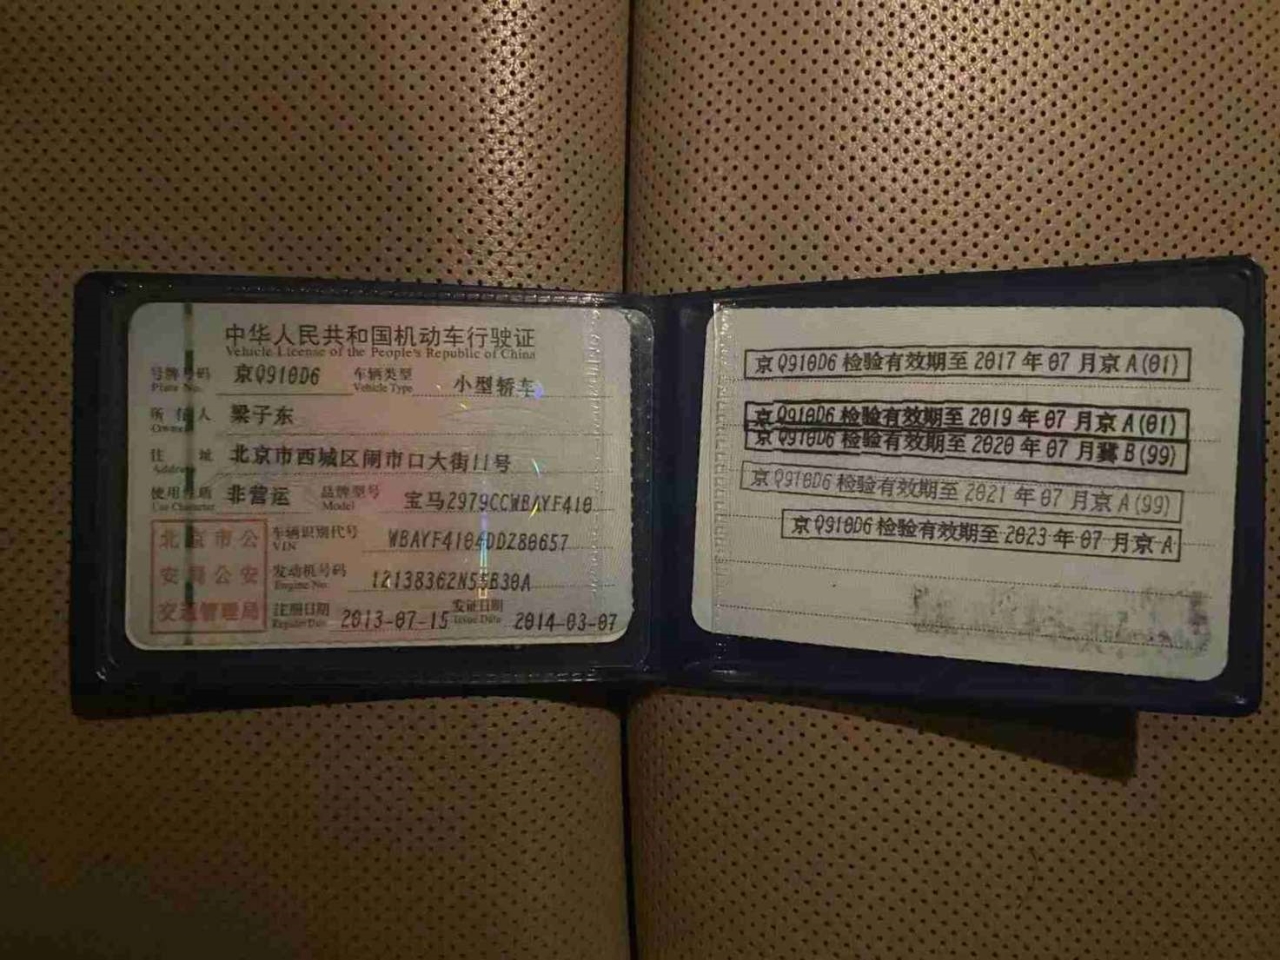 中华人民共和国机动车行驶证
Vehicle License of the People's Republic of China
号牌号码 京Q910D6 车辆类型 小型轿车
Plate No. Vehicle Type
所有人 梁子东
Owner
住址 北京市西城区闹市口大街11号
Address
使用性质 非营运 品牌型号 宝马2979CCWBAYF410
Use Character Model
北京市公 车辆识别代号 WBAYF4104DDZ80657
VIN
安局公安 发动机号码 12138362N55B30A
Engine No.
交通管理局 注册日期 2013-07-15 发证日期 2014-03-07
Register Date Issue Date
京Q910D6 检验有效期至 2017 年 07 月京 A(01)
京Q910D6 检验有效期至 2019 年 07 月京 A(01)
京Q910D6 检验有效期至 2020 年 07 月冀 B(99)
京Q910D6 检验有效期至 2021 年 07 月京 A(99)
京Q910D6 检验有效期至 2023 年 07 月京 A